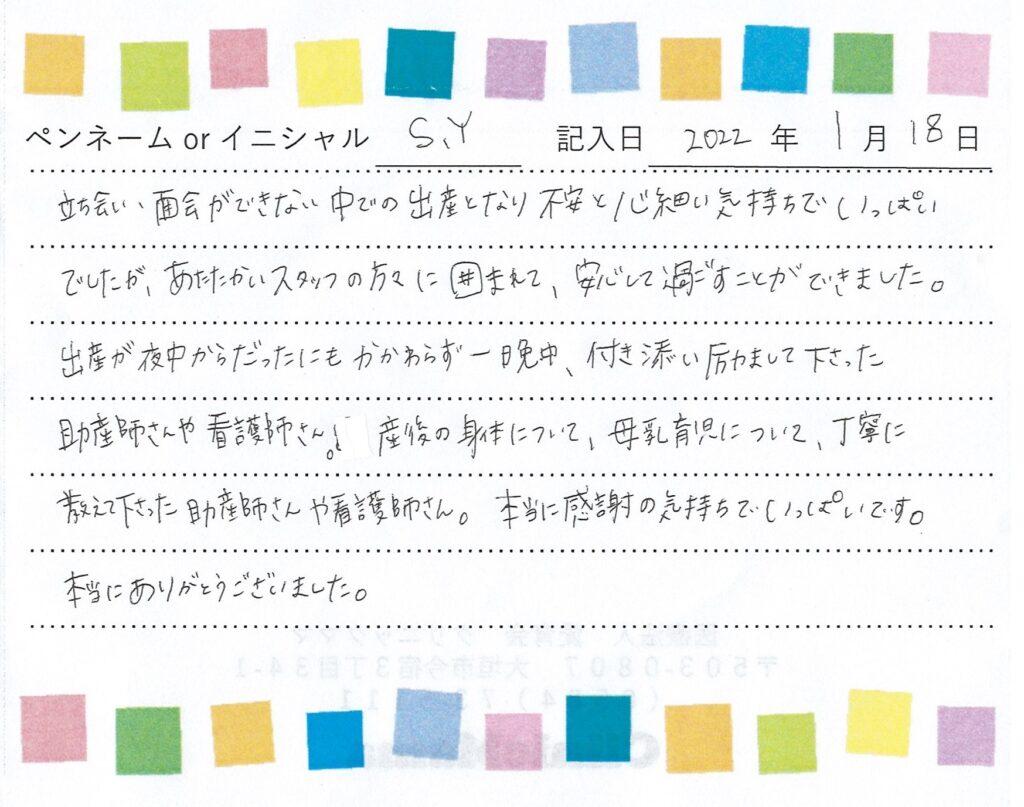 ペンネーム or イニシャル S.Y 記入日 2022 年 1 月 18 日
立ち会い、面会ができない中での出産となり不安と心細い気持ちでいっぱい
でしたが、あたたかいスタッフの方々に囲まれて、安心して過ごすことができました。
出産が夜中からだったにもかかわらず一晩中、付き添い励まして下さった
助産師さんや看護師さん。産後の身体について、母乳育児について、丁寧に
教えて下さった助産師さんや看護師さん。本当に感謝の気持ちでいっぱいです。
本当にありがとうございました。
医療法人 クリニックママ
〒503-0807 大垣市今宿3丁目34-1